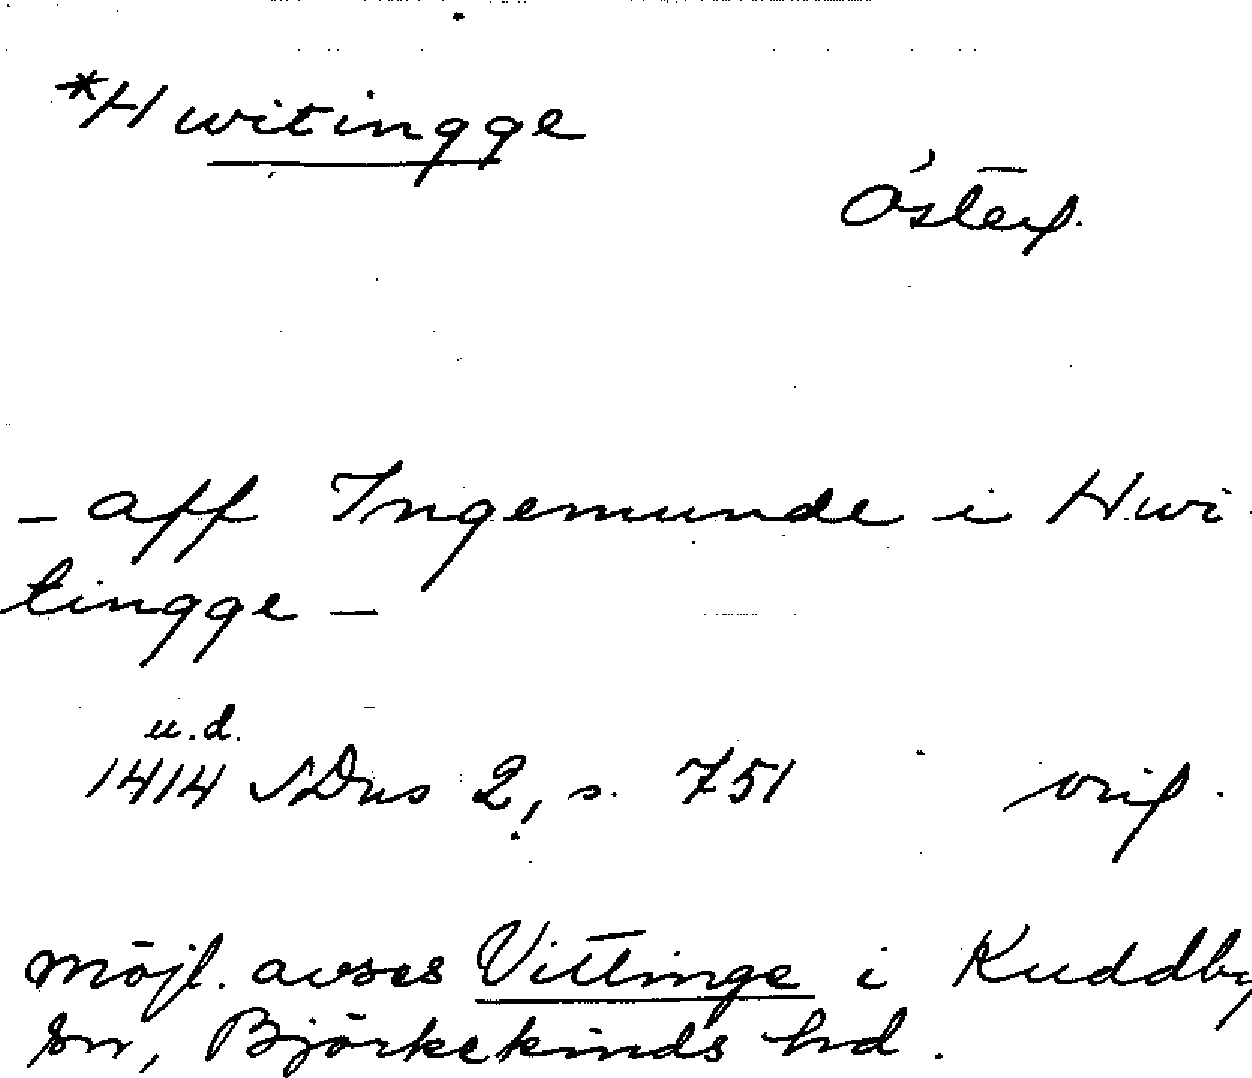 *Hwitingge
Österg.
- aff Ingemunde i Hwi
tingge -
u.d.
1414 SDns 2, s. 751 orig.
möjl. avses Vittinge i Kuddby
sn, Björkekinds hd.